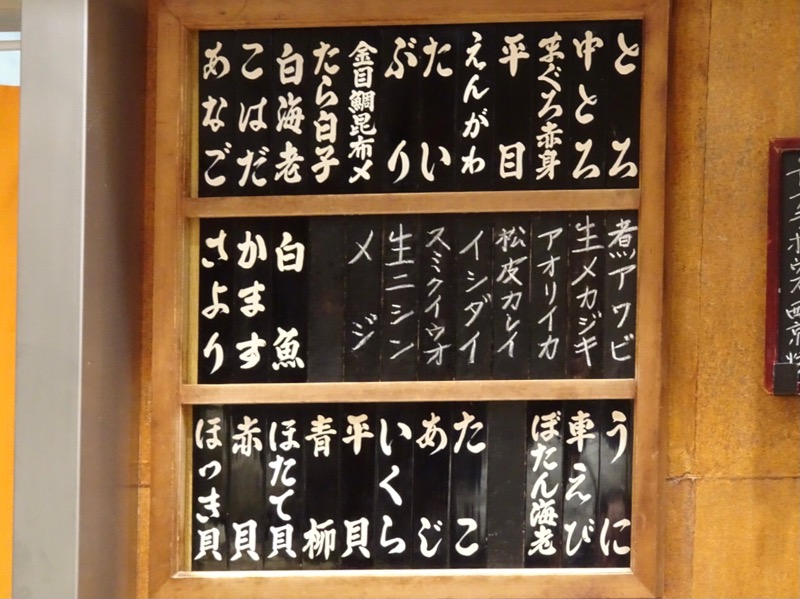 とろ
中とろ
まぐろ赤身
平目
えんがわ
たい
ぶり
金目鯛昆布〆
たら白子
白海老
こはだ
あなご
煮アワビ
生メカジキ
アオリイカ
松皮カレイ
イシダイ
スミクイウオ
生ニシン
メジ
白魚
かます
さより
うに
車えび
ぼたん海老
たこ
あじ
いくら
平貝
青柳
ほたて貝
赤貝
ほっき貝